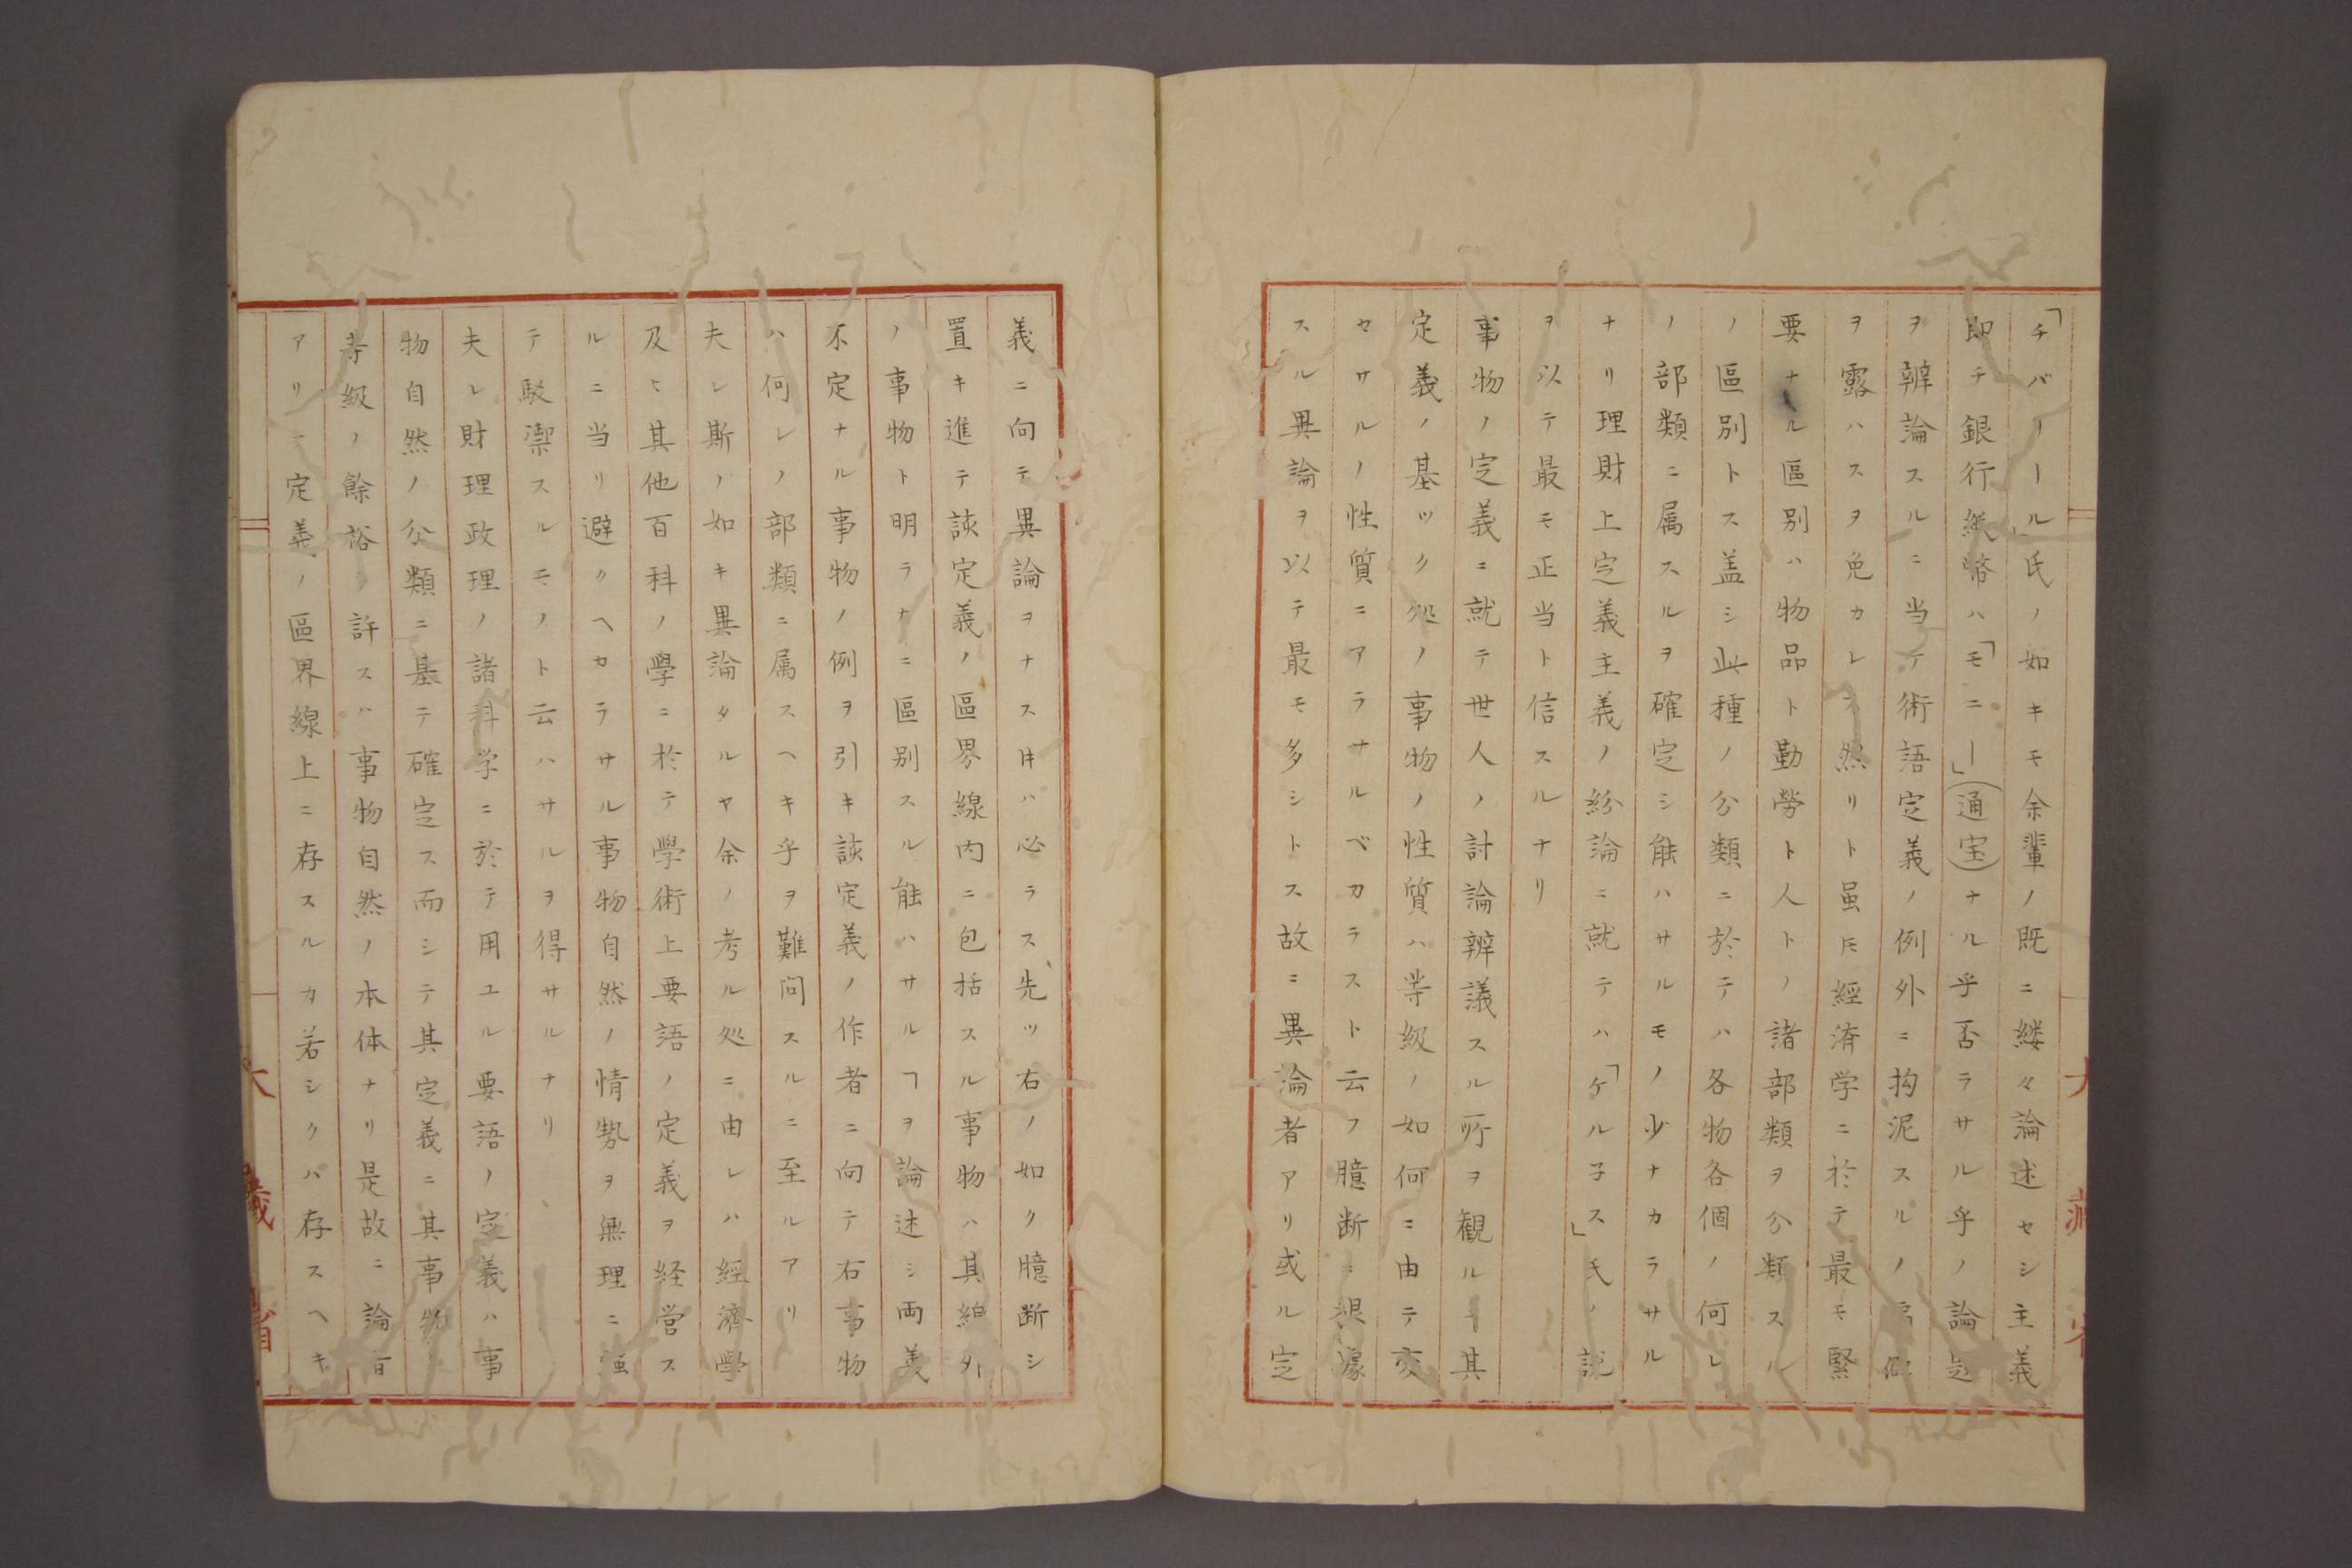 「チバリール」氏ノ如キモ余輩ノ既ニ縷々論述セシ主義
即チ銀行紙幣ハ「モニー」(通宝)ナル乎否ラサル乎ノ論題
ヲ辨論スルニ当テ術語定義ノ例外ニ拘泥スルノ
ヲ露ハスヲ免カレス然リト虽𪜈經済学ニ於テ最モ緊
要ナル區別ハ物品ト勤勞ト人トノ諸部類ヲ分類スル
ノ區別トス盖シ此種ノ分類ニ於テハ各物各個ノ何レ
ノ部類ニ属スルヲ確定シ能ハサルモノ少ナカラサル
ナリ理財上定義主義ノ紛論ニ就テハ「ケル子ス」氏ノ説
ヲ以テ最モ正当ト信スルナリ
事物ノ定義ニ就テ世人ノ討論辨議スル所ヲ観ルニ其
定義ノ基ツク処ノ事物ノ性質ハ等級ノ如何ニ由テ変
セサルノ性質ニアラサルベカラスト云フ臆断ニ根據
スル異論ヲ以テ最モ多シトス故ニ異論者アリ或ル定
義ニ向テ異論ヲナス𪜈ハ必ラス先ツ右ノ如ク臆断シ
置キ進テ該定義ノ區界線内ニ包括スル事物ハ其線外
ノ事物ト明ラナニ區別スル能ハサルヿヲ論述シ両義
不定ナル事物ノ例ヲ引キ該定義ノ作者ニ向テ右事物
ハ何レノ部類ニ属スヘキ乎ヲ難問スルニ至ルアリ
夫レ斯ノ如キ異論タルヤ余ノ考ル処ニ由レハ經濟學
及ヒ其他百科ノ學ニ於テ學術上要語ノ定義ヲ経営ス
ルニ当リ避クヘカラサル事物自然ノ情勢ヲ無理ニ強
テ駁禦スルモノト云ハサルヲ得サルナリ
夫レ財理政理ノ諸科学ニ於テ用ユル要語ノ定義ハ事
物自然ノ分類ニ基テ確定ス而シテ其定義ニ其事物
等級ノ餘裕ヲ許スハ事物自然ノ本体ナリ是故ニ論旨
アリテ定義ノ區界線上ニ存スルカ若シクハ存スヘキ
大藏省
大藏省